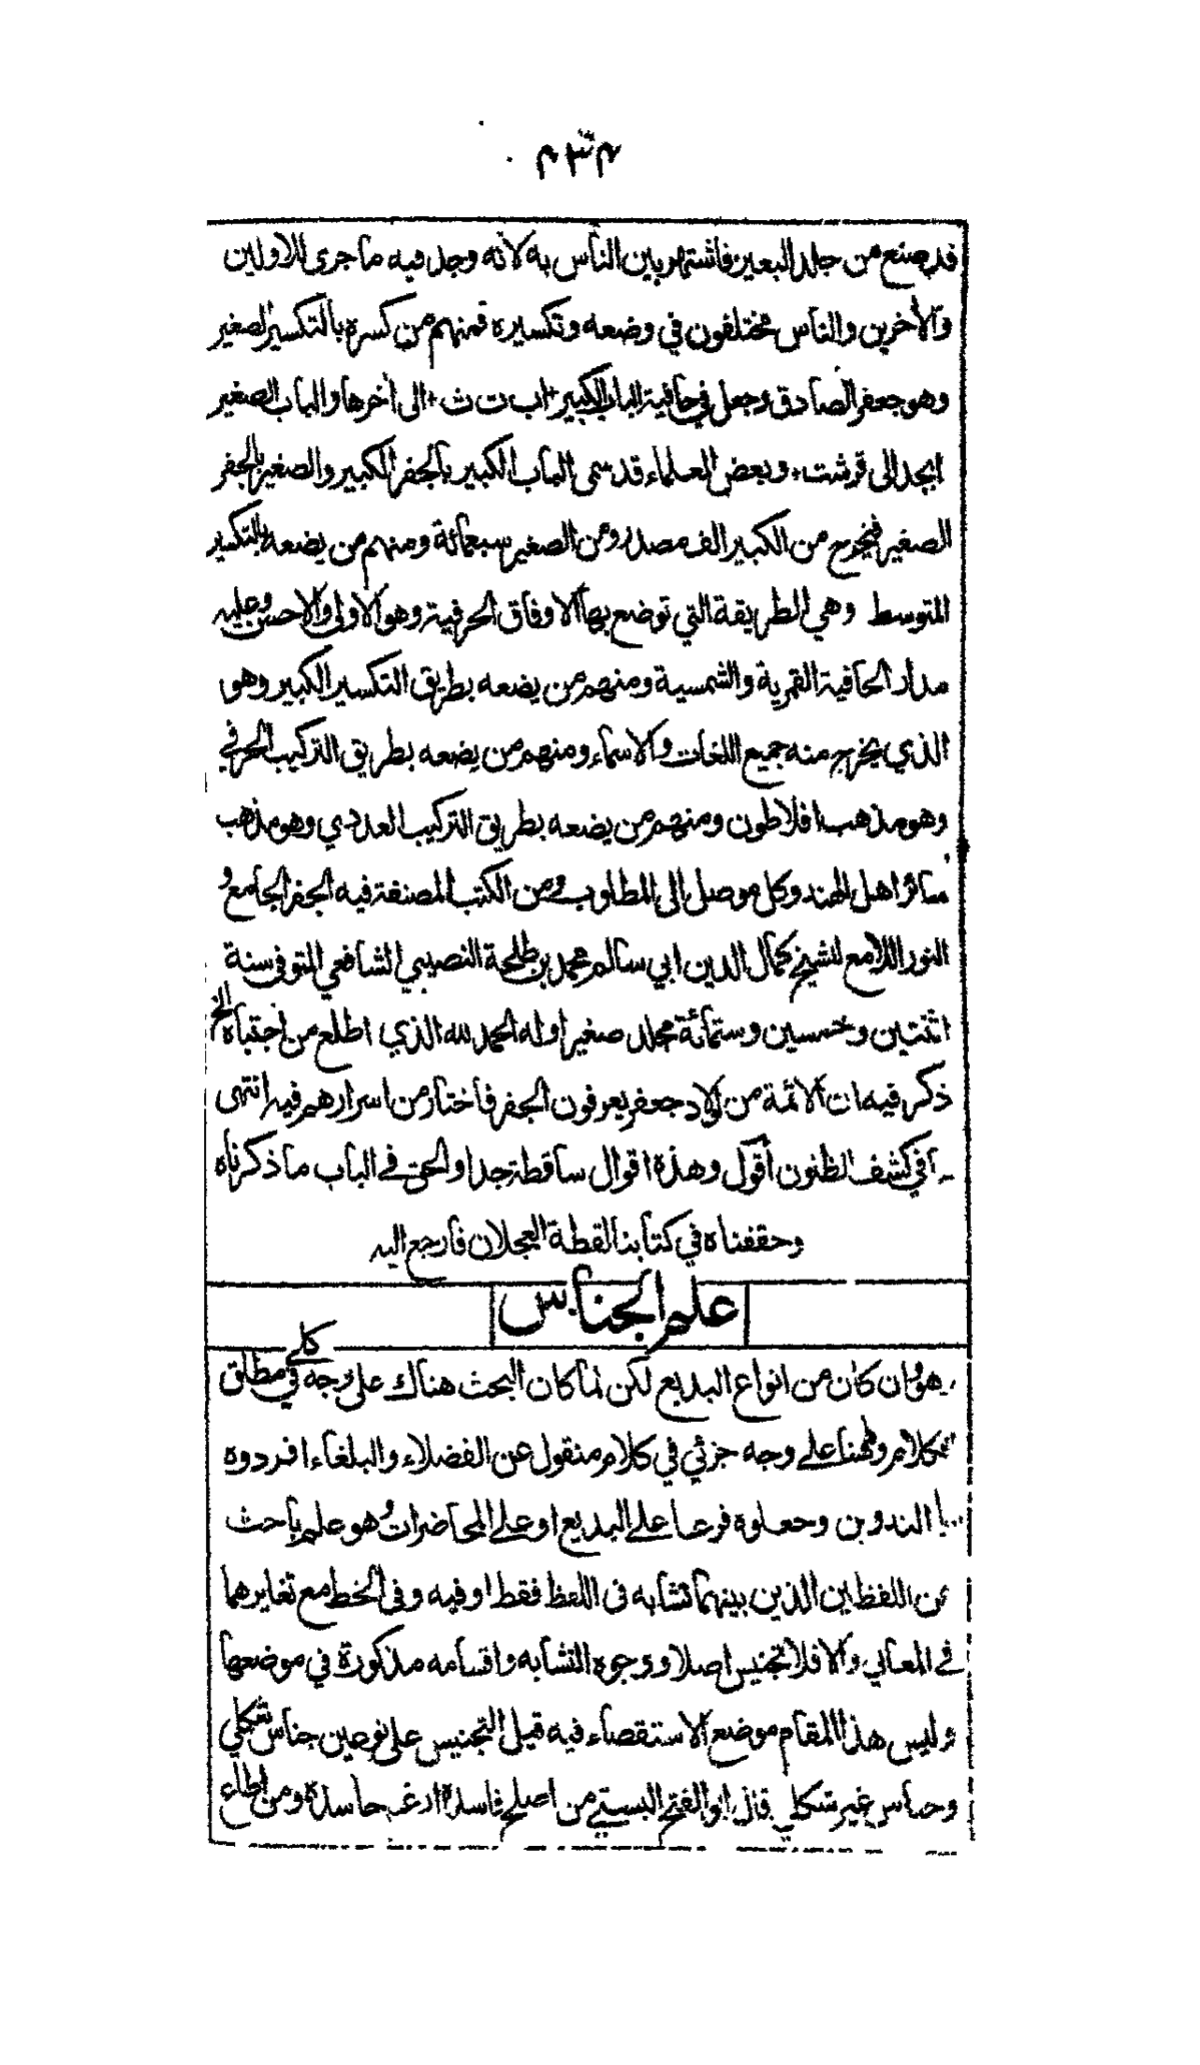 ٤٣٤
قد صنع من جلد البعير فاشتهر بين الناس به لانه وجد فيه ما جرى للاولين
والأخرين والناس مختلفون في وضعه وتكسيره فمنهم من كسره بالتكسير الصغير
وهو جعفر الصادق وجعل في حافية الباب الكبير اب ت ث الى أخرها والباب الصغير
ابجد الى قرشت وبعض العلماء قد سمى الباب الكبير بالجفر الكبير والصغير بالجفر
الصغير فيخرج من الكبير الف مصدر ومن الصغير سبعمائة ومنهم من يضعه بالتكسير
المتوسط وهي الطريقة التي توضع بها الاوفاق الحرفية وهو الاولى والاحسن وعليه
مدار الحافية القمرية والشمسية ومنهم من يضعه بطريق التكسير الكبير وهو
الذي يخرج منه جميع اللغات والاسماء ومنهم من يضعه بطريق التركيب الحرفي
وهو مذهب افلاطون ومنهم من يضعه بطريق التركيب العددي وهو مذهب
سائر اهل الهند وكل موصل الى المطلوب ومن الكتب المصنفة فيه الجفر الجامع و
النور اللامع للشيخ كمال الدين ابي سالم محمد بن طلحة النصيبي الشافعي المتوفى سنة
اثنتين وخمسين وستمائة مجلد صغير اوله الحمد لله الذي اطلع من اجتباه الخ
ذكر فيه ان الائمة من اولاد جعفر يعرفون الجفر فاختار من اسرارهم فيه انتهى
ما في كشف الظنون أقول وهذه اقوال ساقطة جدا والحق في الباب ما ذكرناه
وحققناه في كتابنا لقطة العجلان فارجع اليه
علم الجناس
هو وان كان من انواع البديع لكن لما كان البحث هناك على وجه كلي في مطلق
الكلام وههنا على وجه جزئي في كلام منقول عن الفضلاء والبلغاء افردوه
بالتدوين وجعلوه فرعا على البديع او على المحاضرات وهو علم باحث
عن اللفظين الذين بينهما تشابه فى اللفظ فقط او فيه وفى الخط مع تغايرهما
في المعاني والا فلا تجنيس اصلا ووجوه التشابه واقسامه مذكورة في موضعها
وليس هذا المقام موضع الاستقصاء فيه قيل التجنيس على نوعين جناس شكلي
وجناس غير شكلي قال ابو الفتح البستي من اصلح فاسده ارغم حاسده ومن اطاع